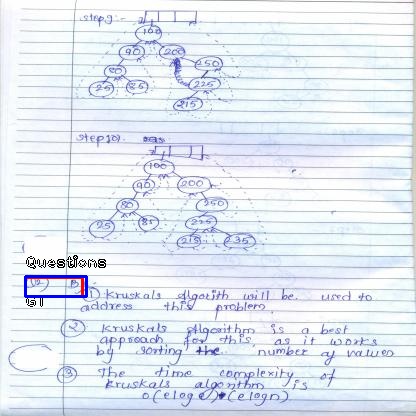 step9:-
100
90 200
80 250
25 85 225
215
step10:
100
90 200
80 250
25 85 225
215 235
Questions
12 B
① Kruskals Algorith will be used to
address this problem
② Kruskals Algorithm is a best
approach for this, as it works
by sorting the number of values
③ The time complexity of
Kruskals algorithm is
O(eloge) (elogn)